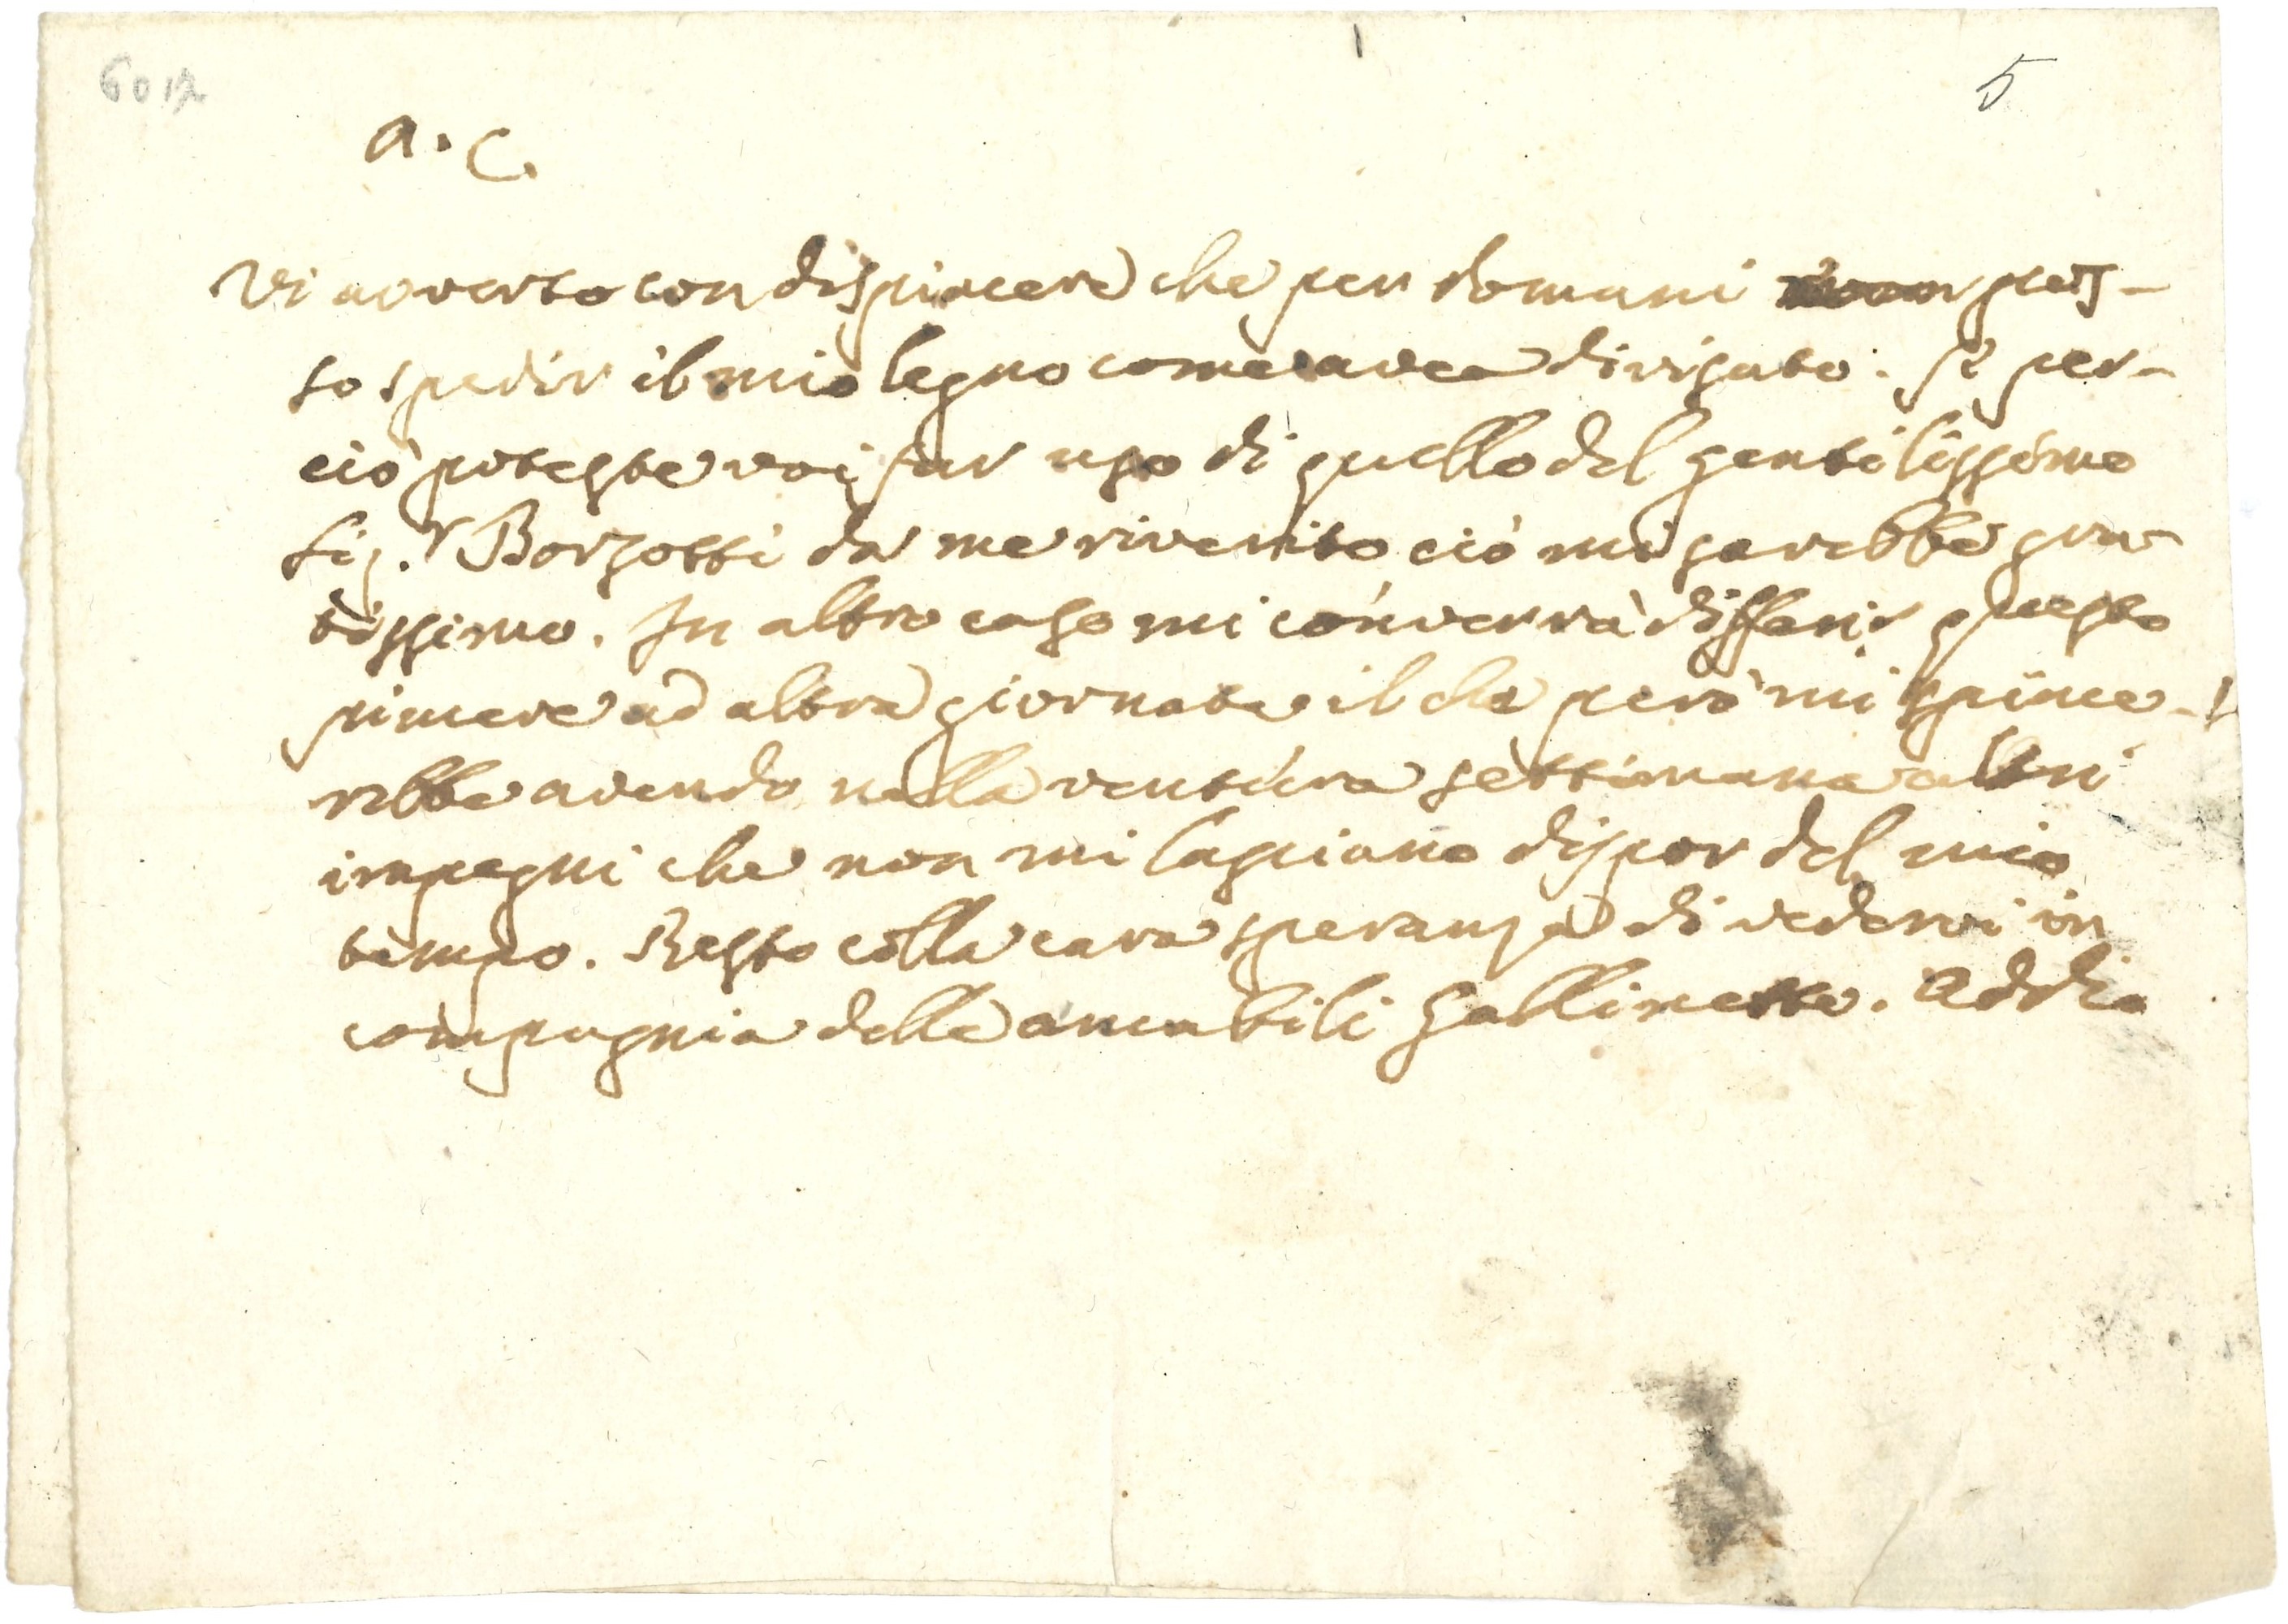 6012
5
A. C.
Vi avverto con dispiacere che per domani non pos-
so spedir il mio legno come avea divisato. Se per-
ciò poteste voi far uso di quello del gentilissimo
Sig.r Borzotti da me riverito ciò mi sarebbe gra
tissimo. In altro caso mi converrà differir questo
piacere ad altra giornata il che però mi spiace-
rebbe avendo nella ventura settimana altri
impegni che non mi lasciano dispor del mio
tempo. Resto colla cara speranza di vedervi in
compagnia delle amabili Gallinette. Addio